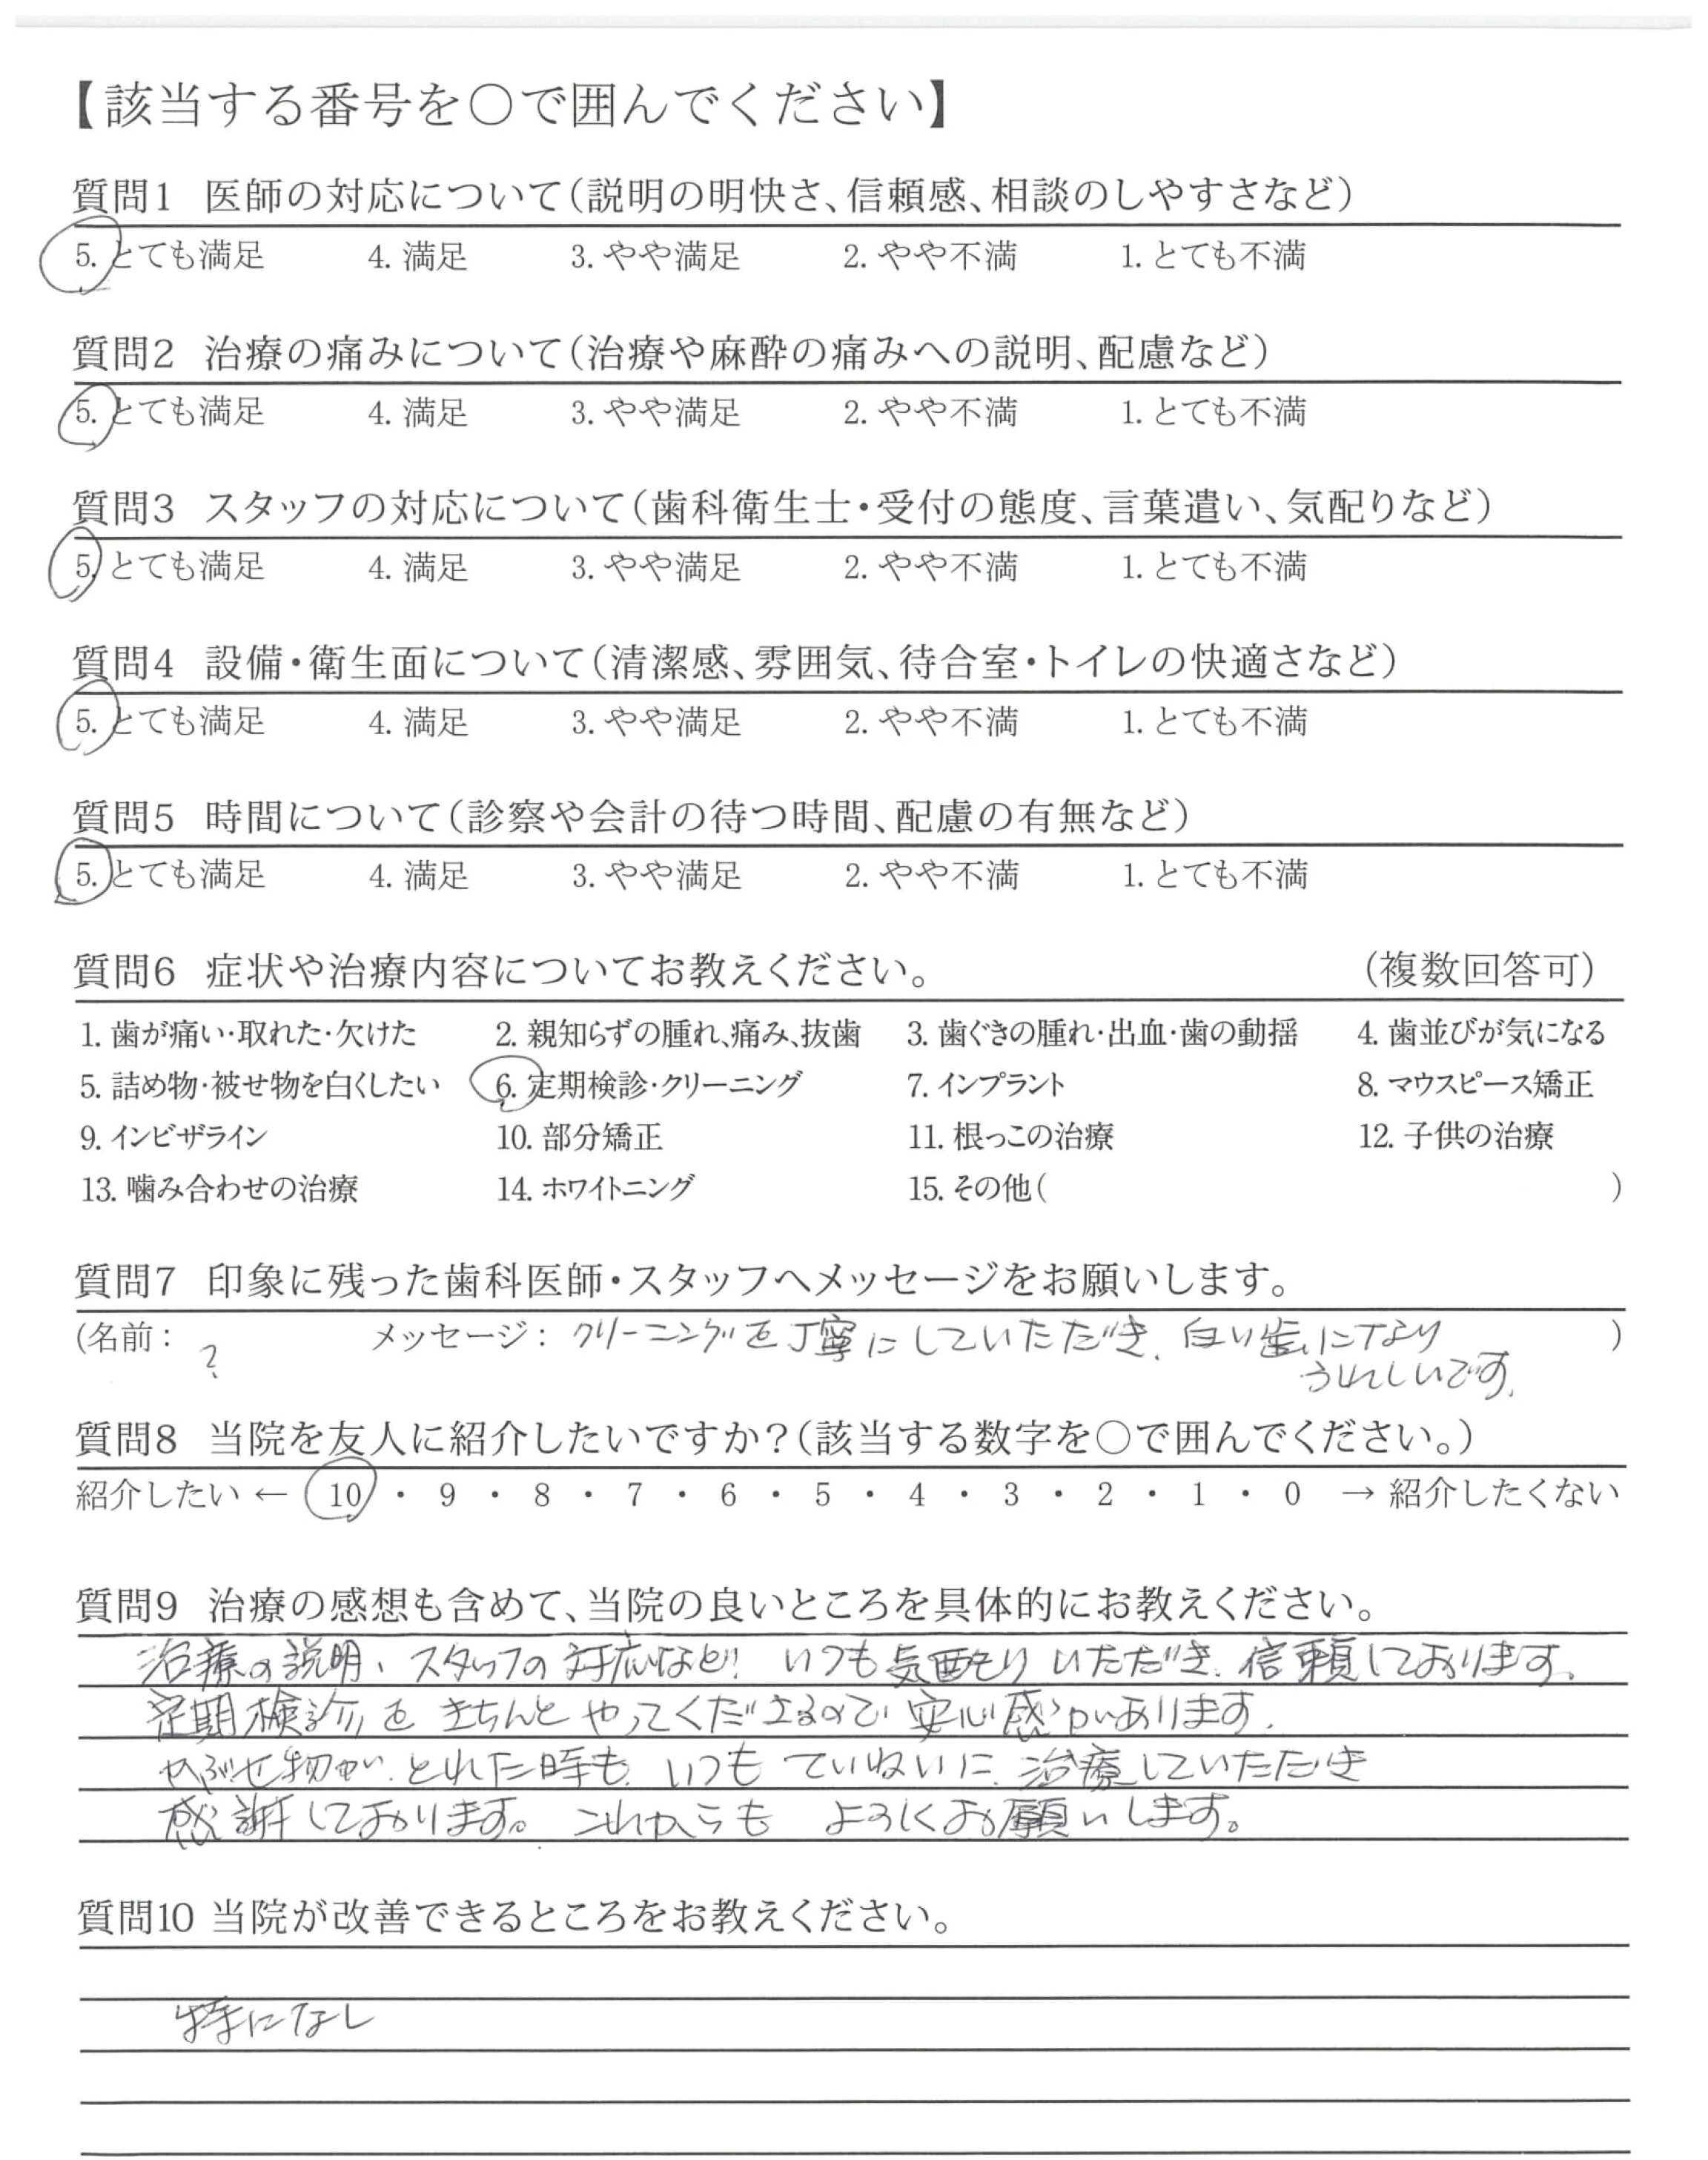 【該当する番号を○で囲んでください】
質問1 医師の対応について(説明の明快さ、信頼感、相談のしやすさなど)
5. とても満足 4. 満足 3. やや満足 2. やや不満 1. とても不満
質問2 治療の痛みについて(治療や麻酔の痛みへの説明、配慮など)
5. とても満足 4. 満足 3. やや満足 2. やや不満 1. とても不満
質問3 スタッフの対応について(歯科衛生士・受付の態度、言葉遣い、気配りなど)
5. とても満足 4. 満足 3. やや満足 2. やや不満 1. とても不満
質問4 設備・衛生面について(清潔感、雰囲気、待合室・トイレの快適さなど)
5. とても満足 4. 満足 3. やや満足 2. やや不満 1. とても不満
質問5 時間について(診察や会計の待つ時間、配慮の有無など)
5. とても満足 4. 満足 3. やや満足 2. やや不満 1. とても不満
質問6 症状や治療内容についてお教えください。 (複数回答可)
1. 歯が痛い・取れた・欠けた 2. 親知らずの腫れ、痛み、抜歯 3. 歯ぐきの腫れ・出血・歯の動揺 4. 歯並びが気になる
5. 詰め物・被せ物を白くしたい 6. 定期検診・クリーニング 7. インプラント 8. マウスピース矯正
9. インビザライン 10. 部分矯正 11. 根っこの治療 12. 子供の治療
13. 噛み合わせの治療 14. ホワイトニング 15. その他( )
質問7 印象に残った歯科医師・スタッフへメッセージをお願いします。
(名前: ? メッセージ: クリーニングを丁寧にしていただき、白い歯になり )
うれしいです。
質問8 当院を友人に紹介したいですか?(該当する数字を○で囲んでください。)
紹介したい ← 10 ・ 9 ・ 8 ・ 7 ・ 6 ・ 5 ・ 4 ・ 3 ・ 2 ・ 1 ・ 0 → 紹介したくない
質問9 治療の感想も含めて、当院の良いところを具体的にお教えください。
治療の説明、スタッフの対応など、いつも気配りいただき、信頼しております。
定期検診をきちんとやってくださるので安心感があります。
かぶせ物が、とれた時も、いつもていねいに、治療していただき
感謝しております。これからも よろしくお願いします。
質問10 当院が改善できるところをお教えください。
特になし